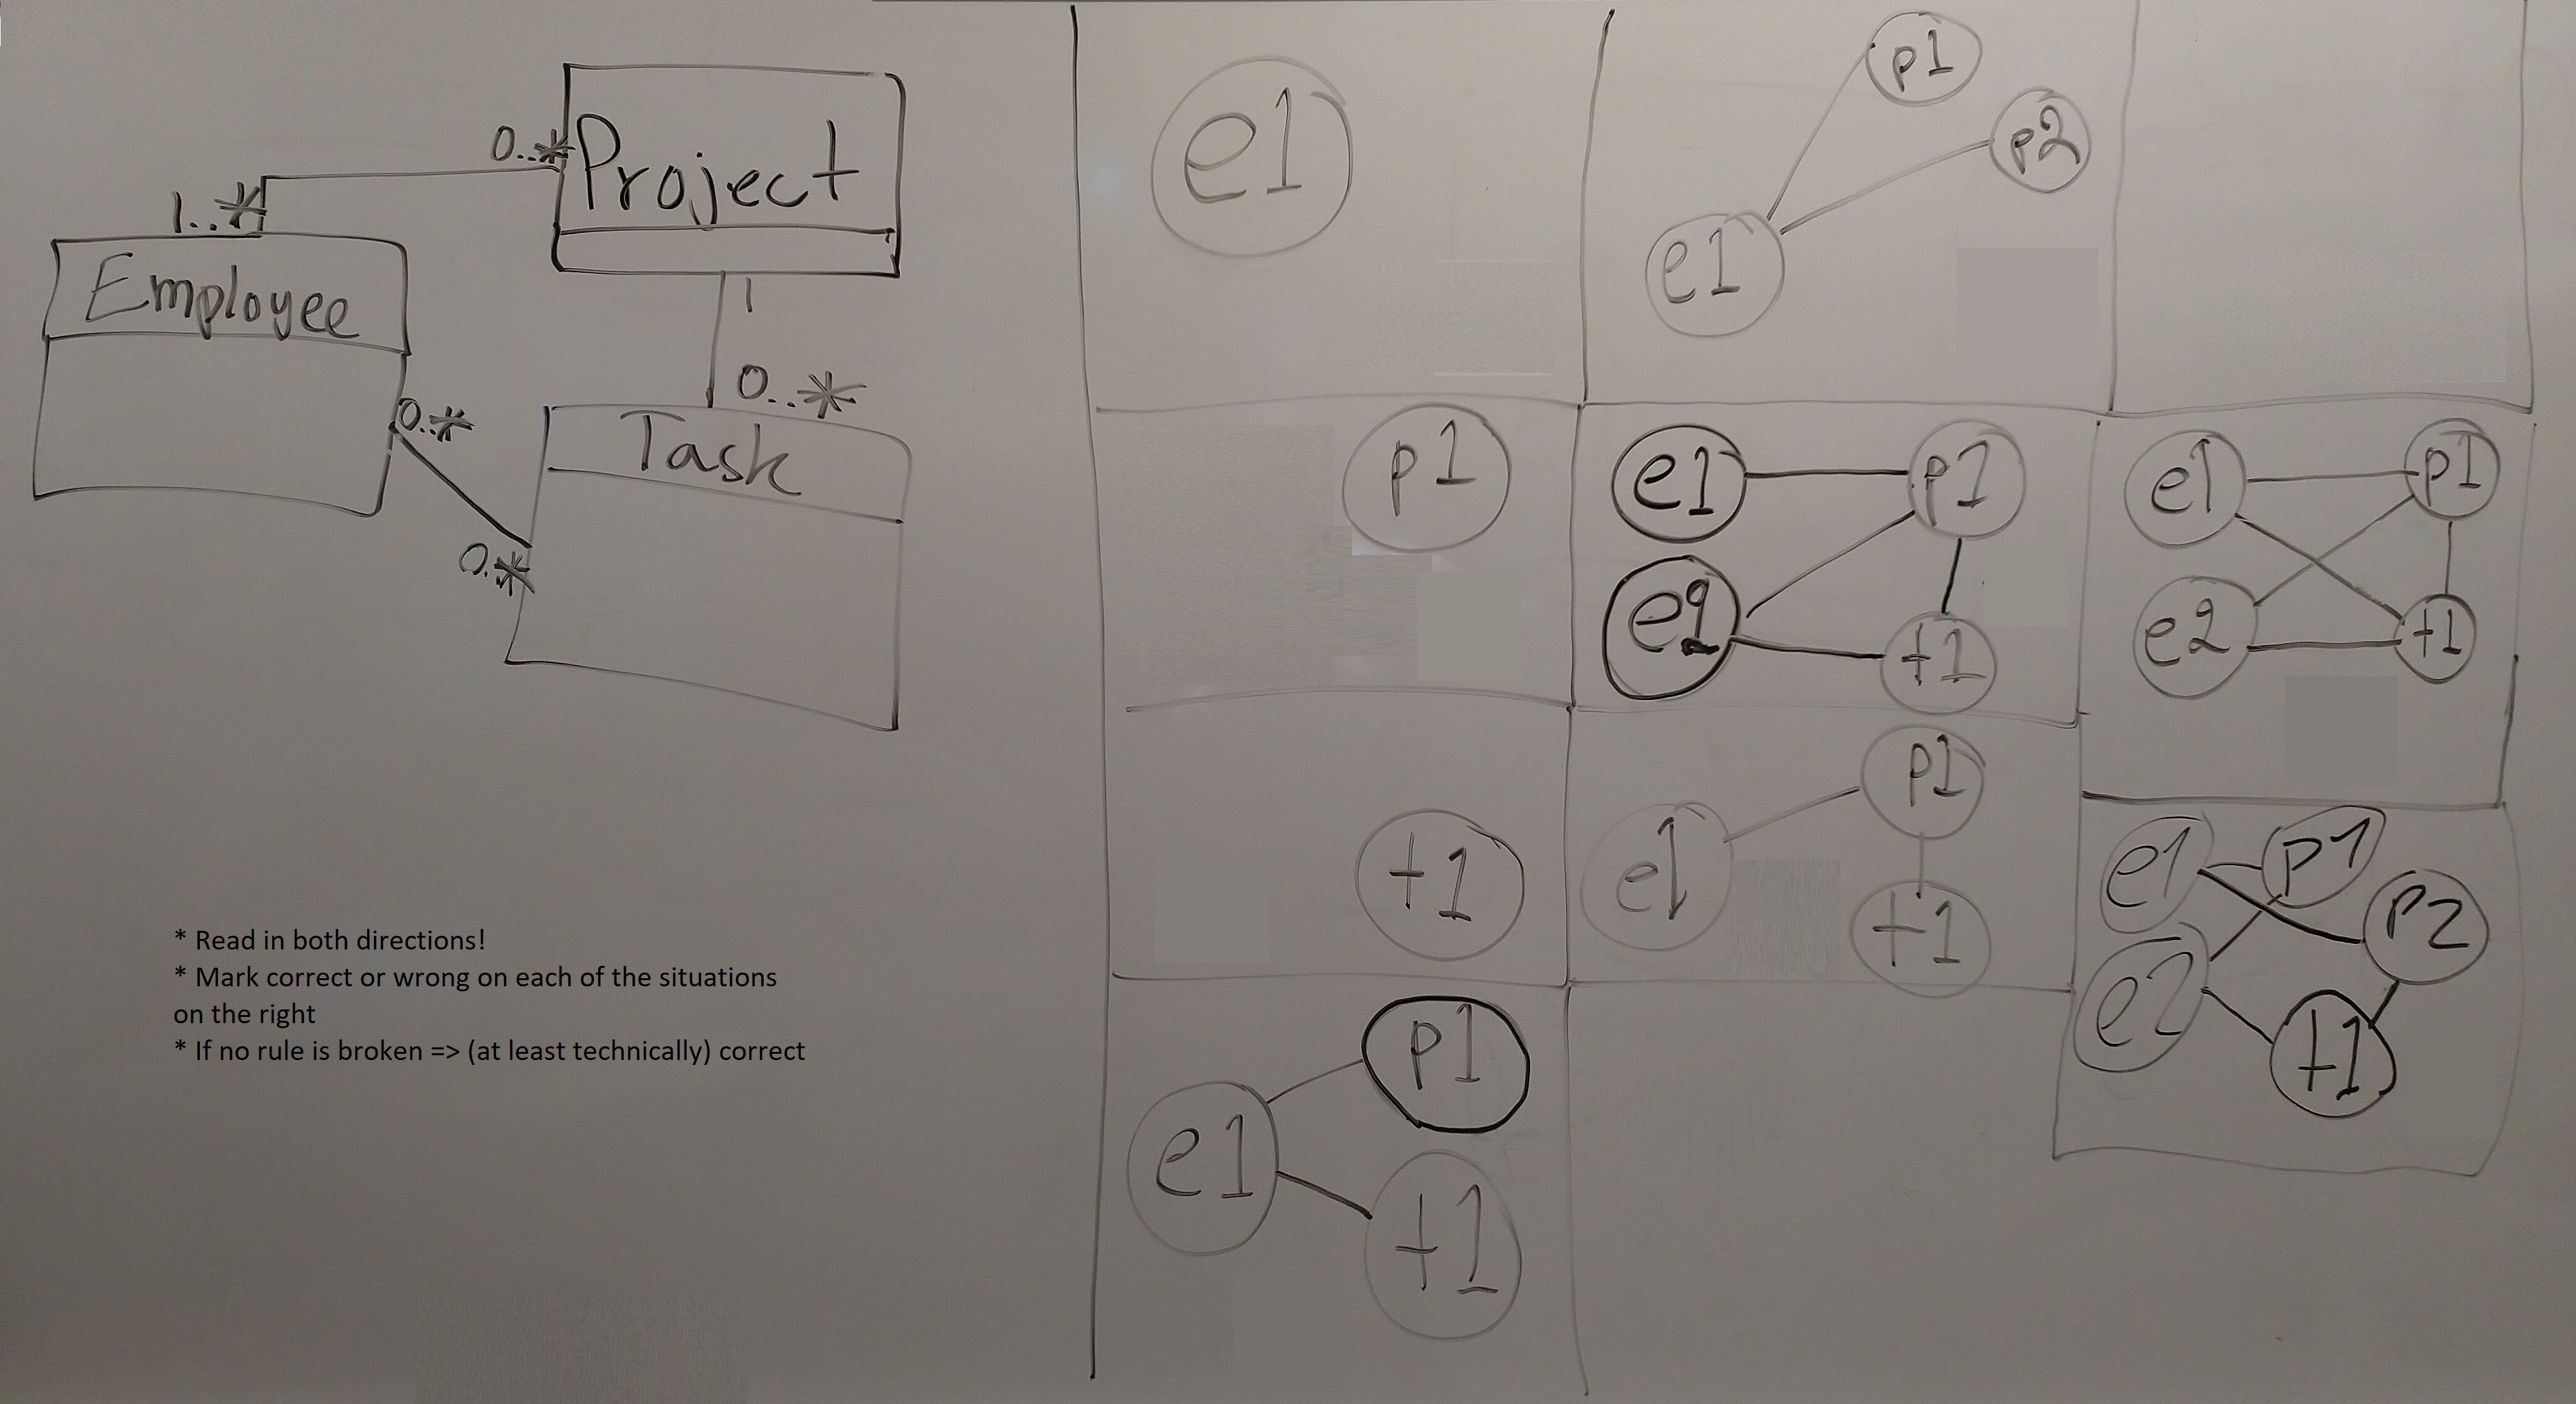 Project
0..*
1..*
Employee
1
0..*
Task
0..*
0..*
* Read in both directions!
* Mark correct or wrong on each of the situations
on the right
* If no rule is broken => (at least technically) correct
e1
p1
p2
e1
p1
e1
p1
e2
t1
e1
p1
e2
t1
t1
p1
e1
t1
e1
p1
p2
e2
t1
p1
e1
t1